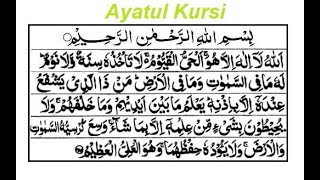 Ayatul Kursi
بِسْمِ اللهِ الرَّحْمٰنِ الرَّحِيْمِ
اَللهُ لَآ اِلٰهَ اِلَّا هُوَ ۚ اَلْحَيُّ الْقَيُّوْمُ ۚ لَا تَاْخُذُهٗ سِنَةٌ وَّلَا نَوْمٌ ؕ
لَهٗ مَا فِى السَّمٰوٰتِ وَمَا فِى الْاَرْضِ ؕ مَنْ ذَا الَّذِيْ يَشْفَعُ
عِنْدَهٗٓ اِلَّا بِاِذْنِهٖ ؕ يَعْلَمُ مَا بَيْنَ اَيْدِيْهِمْ وَمَا خَلْفَهُمْ ۚ وَلَا
يُحِيْطُوْنَ بِشَيْءٍ مِّنْ عِلْمِهٖٓ اِلَّا بِمَا شَآءَ ۚ وَسِعَ كُرْسِيُّهُ السَّمٰوٰتِ
وَالْاَرْضَ ۚ وَلَا يَئُوْدُهٗ حِفْظُهُمَا ۚ وَهُوَ الْعَلِيُّ الْعَظِيْمُ